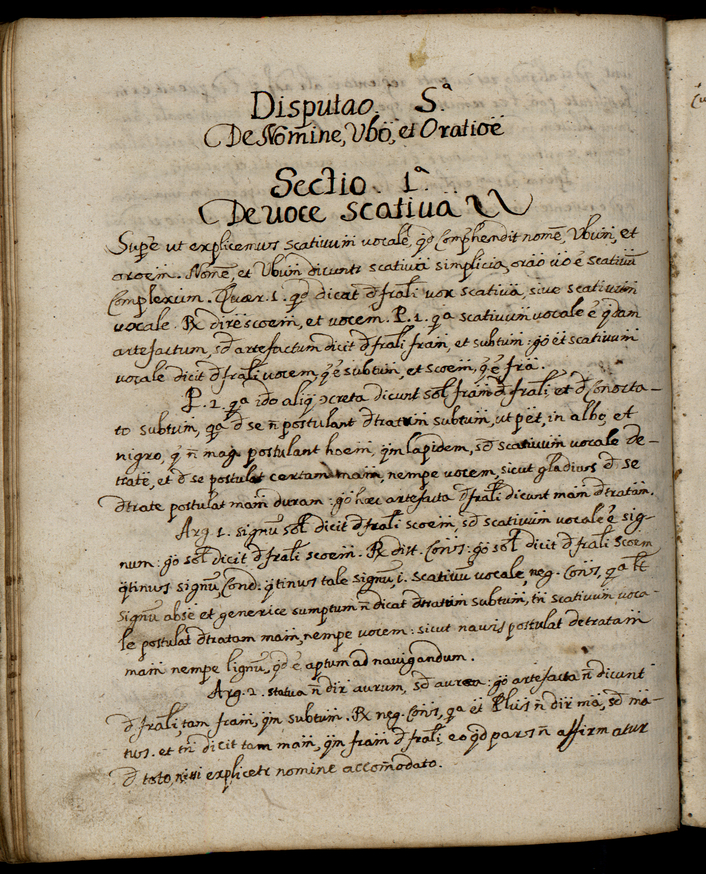 Disputao. S.ª
De Nomine, Vbõ, et Oratioẽ
Sectio. 1.ª
De voce scativa
Supẽ ut explicemus scativum vocale, qđ Comp̃hendit nomẽ, Vbum, et
oroem. Nomẽ, et Vbum dicunts scativa simplicia, orao v̉o ẽ scativũ
Complexum. Quær. 1. qđ dicat đ frãli vox scativa, sive scativum
vocale. Rx dire scoem, et vocem. P. 1. qª scativum vocale ẽ qđam
artefactum, sđ artefactum dicit đ frãli fram, et subtum: gõ et scativum
vocale dicit đ frãli vocem, q̃ ẽ subtum, et scoem, q̃ ẽ frã.
P. 2. qª ido aliq̃ ↄcreta dicunt sol̃ fram đ frãli et đ Conocta-
to subtum, qª đ se ñ postulant đtratum subtum, ut pẽt, in albo, et
nigro, q̃ ñ mag̃ postulant hoem, q̃m lapidem, sđ scativum vocale de-
tratẽ, et đ se postulat certam mam, nempe vocem, sicut gladius đ se
đtrate postulat mam duram: gõ hæc artefacta đ frãli dicunt mam đtratam.
Arg. 1. signũ sol̃ dicit đ frãli scoem, sđ scativum vocale ẽ sig-
num: gõ sol̃ dicit đ frãli scoem. Rx dist. Cons: gõ sol̃ dicit đ frãli scoem
q̃tinus signũ, Cond. q̃tinus tale signũ, i. scativũ vocale, neg. Cons, qª lt̃
signũ absẽ et generice sumptum ñ dicat đtratum subtum, tñ scativum voca-
le postulat đtratam mam, nempe vocem: sicut navis postulat detratam
mam nempe lignũ, qđ ẽ aptum ad navigandum.
Arg. 2. statua ñ dir aurum, sđ aurea: gõ artefacta ñ dicunt
đ frãli, tam fram, q̃m subtum. Rx neg. Cons, qª et Plus ñ dir mã, sđ mã-
tus. et tñ dicit tam mam, q̃m fram đ frãli, eo qđ pars ñ affirmatur
đ toto, nisi explicetr nomine accomodato.